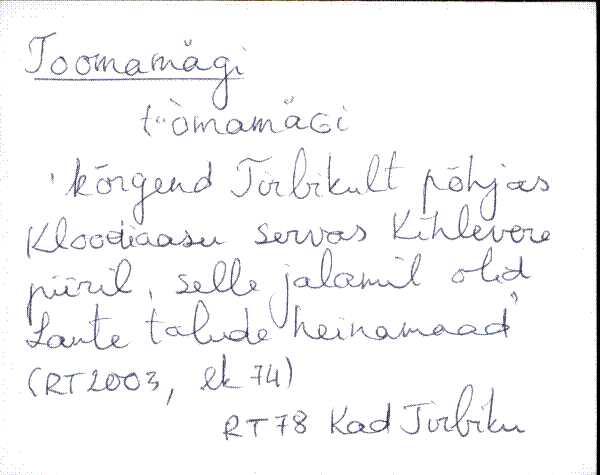 Toomamägi
t̀òmamäGi
'kõrgend Tirbikult põhjas
Kloodiaasu servas Kihlevere
piiril, selle jalamil olid
Lante talude heinamaad"
(RT2003, ek 74)
RT78 Kad Tirbiku